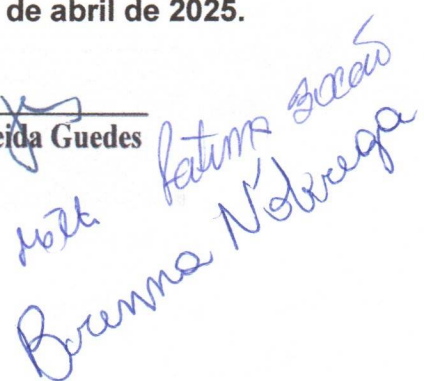 de abril de 2025.
eida Guedes
Fatima
Brenna Nóbrega